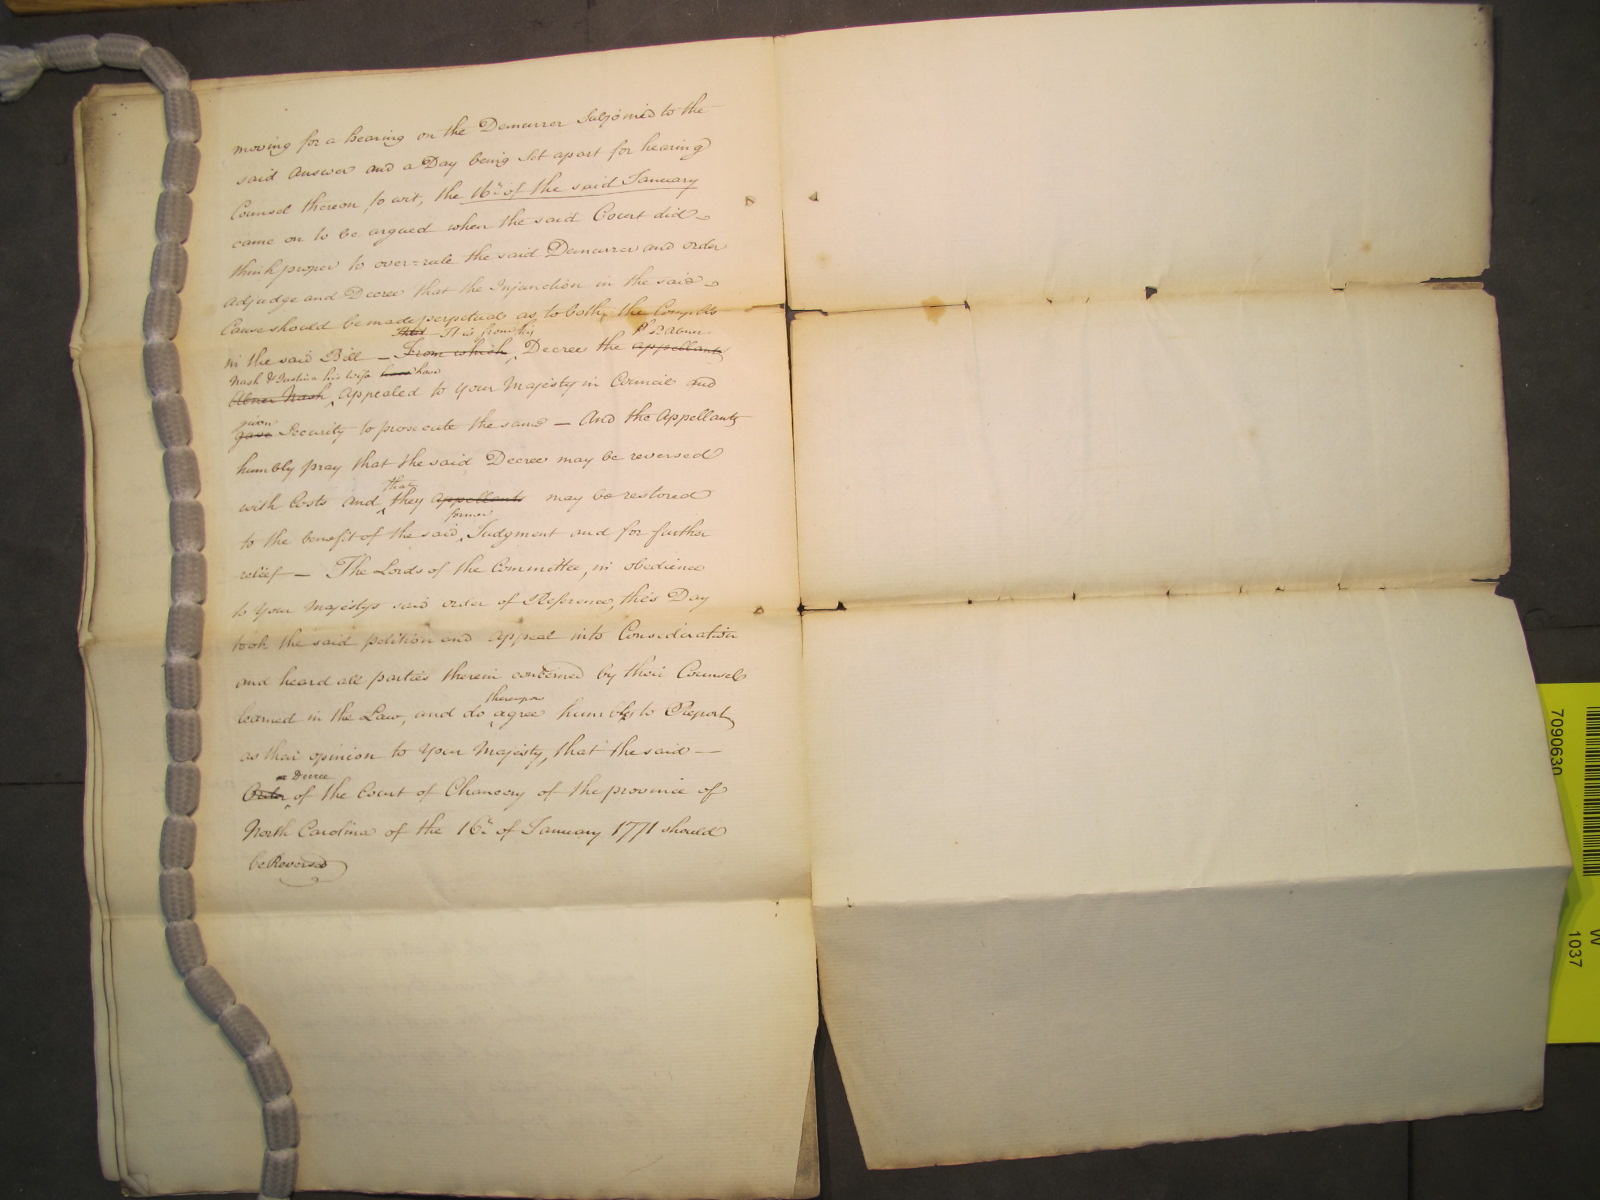 moving for a hearing on the Demurrer Subjoined to the
said Answer and a Day being Set apart for hearing
Counsel thereon to wit, the 16th of the said January
came on to be argued when the said Court did
think proper to over=rule the said Demurrer and order
adjudge and Decree that the Injunction in the said
Cause should be made perpetual as to both the Complts
That It is from this
in the said Bill — From which Decree the appellants
Abner
Nash & Justina his wife have
Abner Nash Appealed to Your Majesty in Council and
given
gave Security to prosecute the same — And the Appellants
humbly pray that the said Decree may be reversed
that
with Costs and they appellants may be restored
former
to the benefit of the said Judgment and for further
relief — The Lords of the Committee, in obedience
to Your Majestys said order of Reference, this Day
took the said petition and appeal into Consideration
and heard all parties therein concerned by their Counsel
learned in the Law, and do agree humbly to Report
thereupon
as their opinion to Your Majesty, that the said —
or Decree
Order of the Court of Chancery of the province of
North Carolina of the 16th of January 1771 should
be Reversed
7090630
W
1037